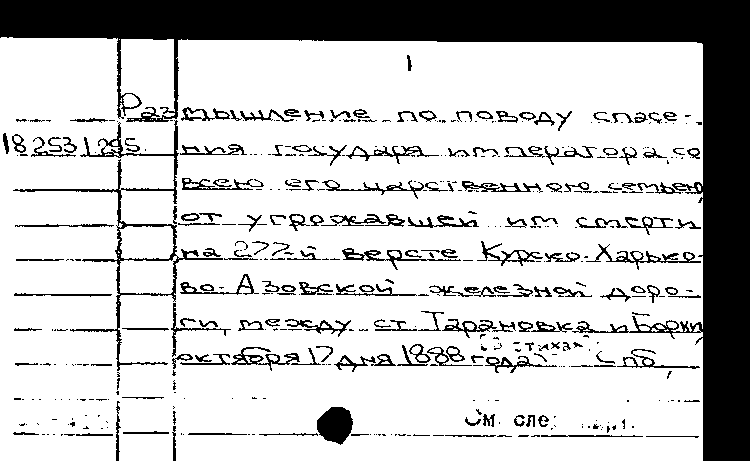 1
Размышление по поводу спасе-
182531295 ния государя императора, со
всею его царственною семьею,
от угрожавшей им смерти
на 277-й версте Курско-Харько-
во-Азовской железной доро-
ги, между ст Тарановка и Борки
октября 17 дня 1888 года [В стихах]. Спб,
См. след. карт.